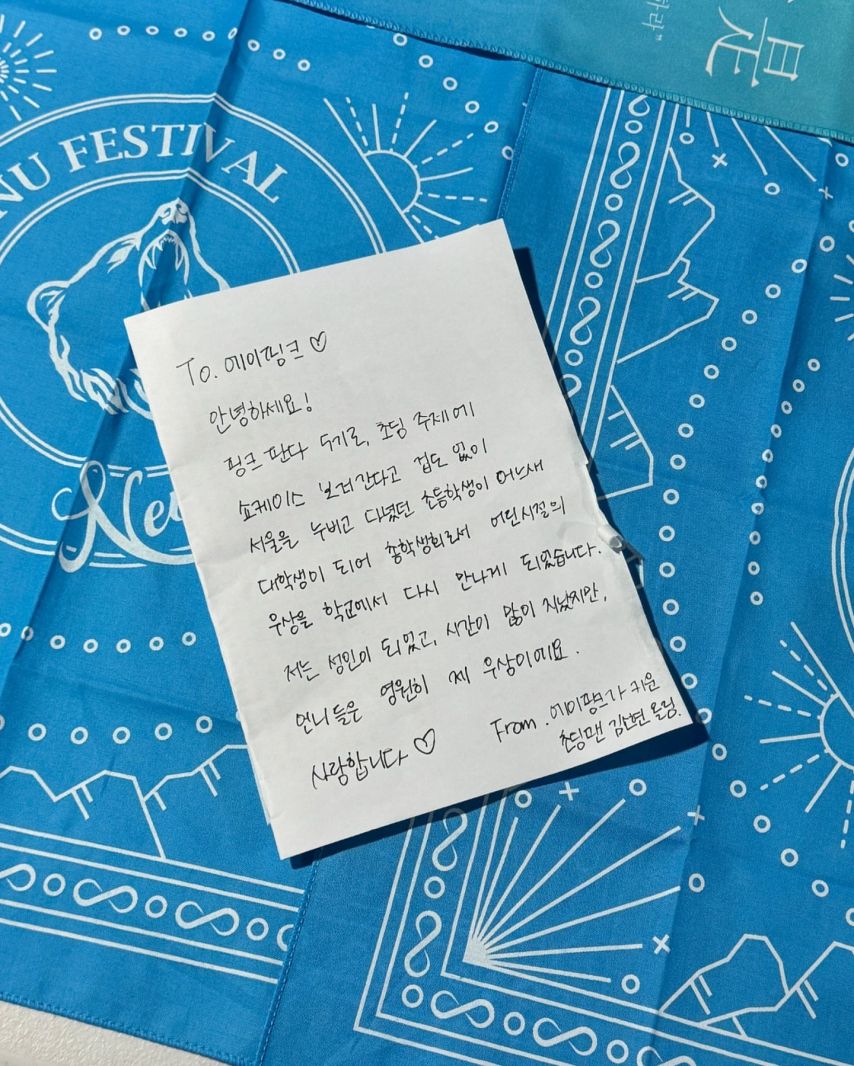 NU FESTIVAL
Ne
To. 에이핑크 ♡
안녕하세요!
핑크 판다 5기로, 초딩 주제에
쇼케이스 보러간다고 겁도 없이
서울을 누비고 다녔던 초등학생이 어느새
대학생이 되어 총학생회로서 어린시절의
우상을 학교에서 다시 만나게 되었습니다.
저는 성인이 되었고, 시간이 많이 지났지만,
언니들은 영원히 제 우상이에요.
사랑합니다 ♡
From. 에이핑크가 키운
초딩팬 올림.
하라"